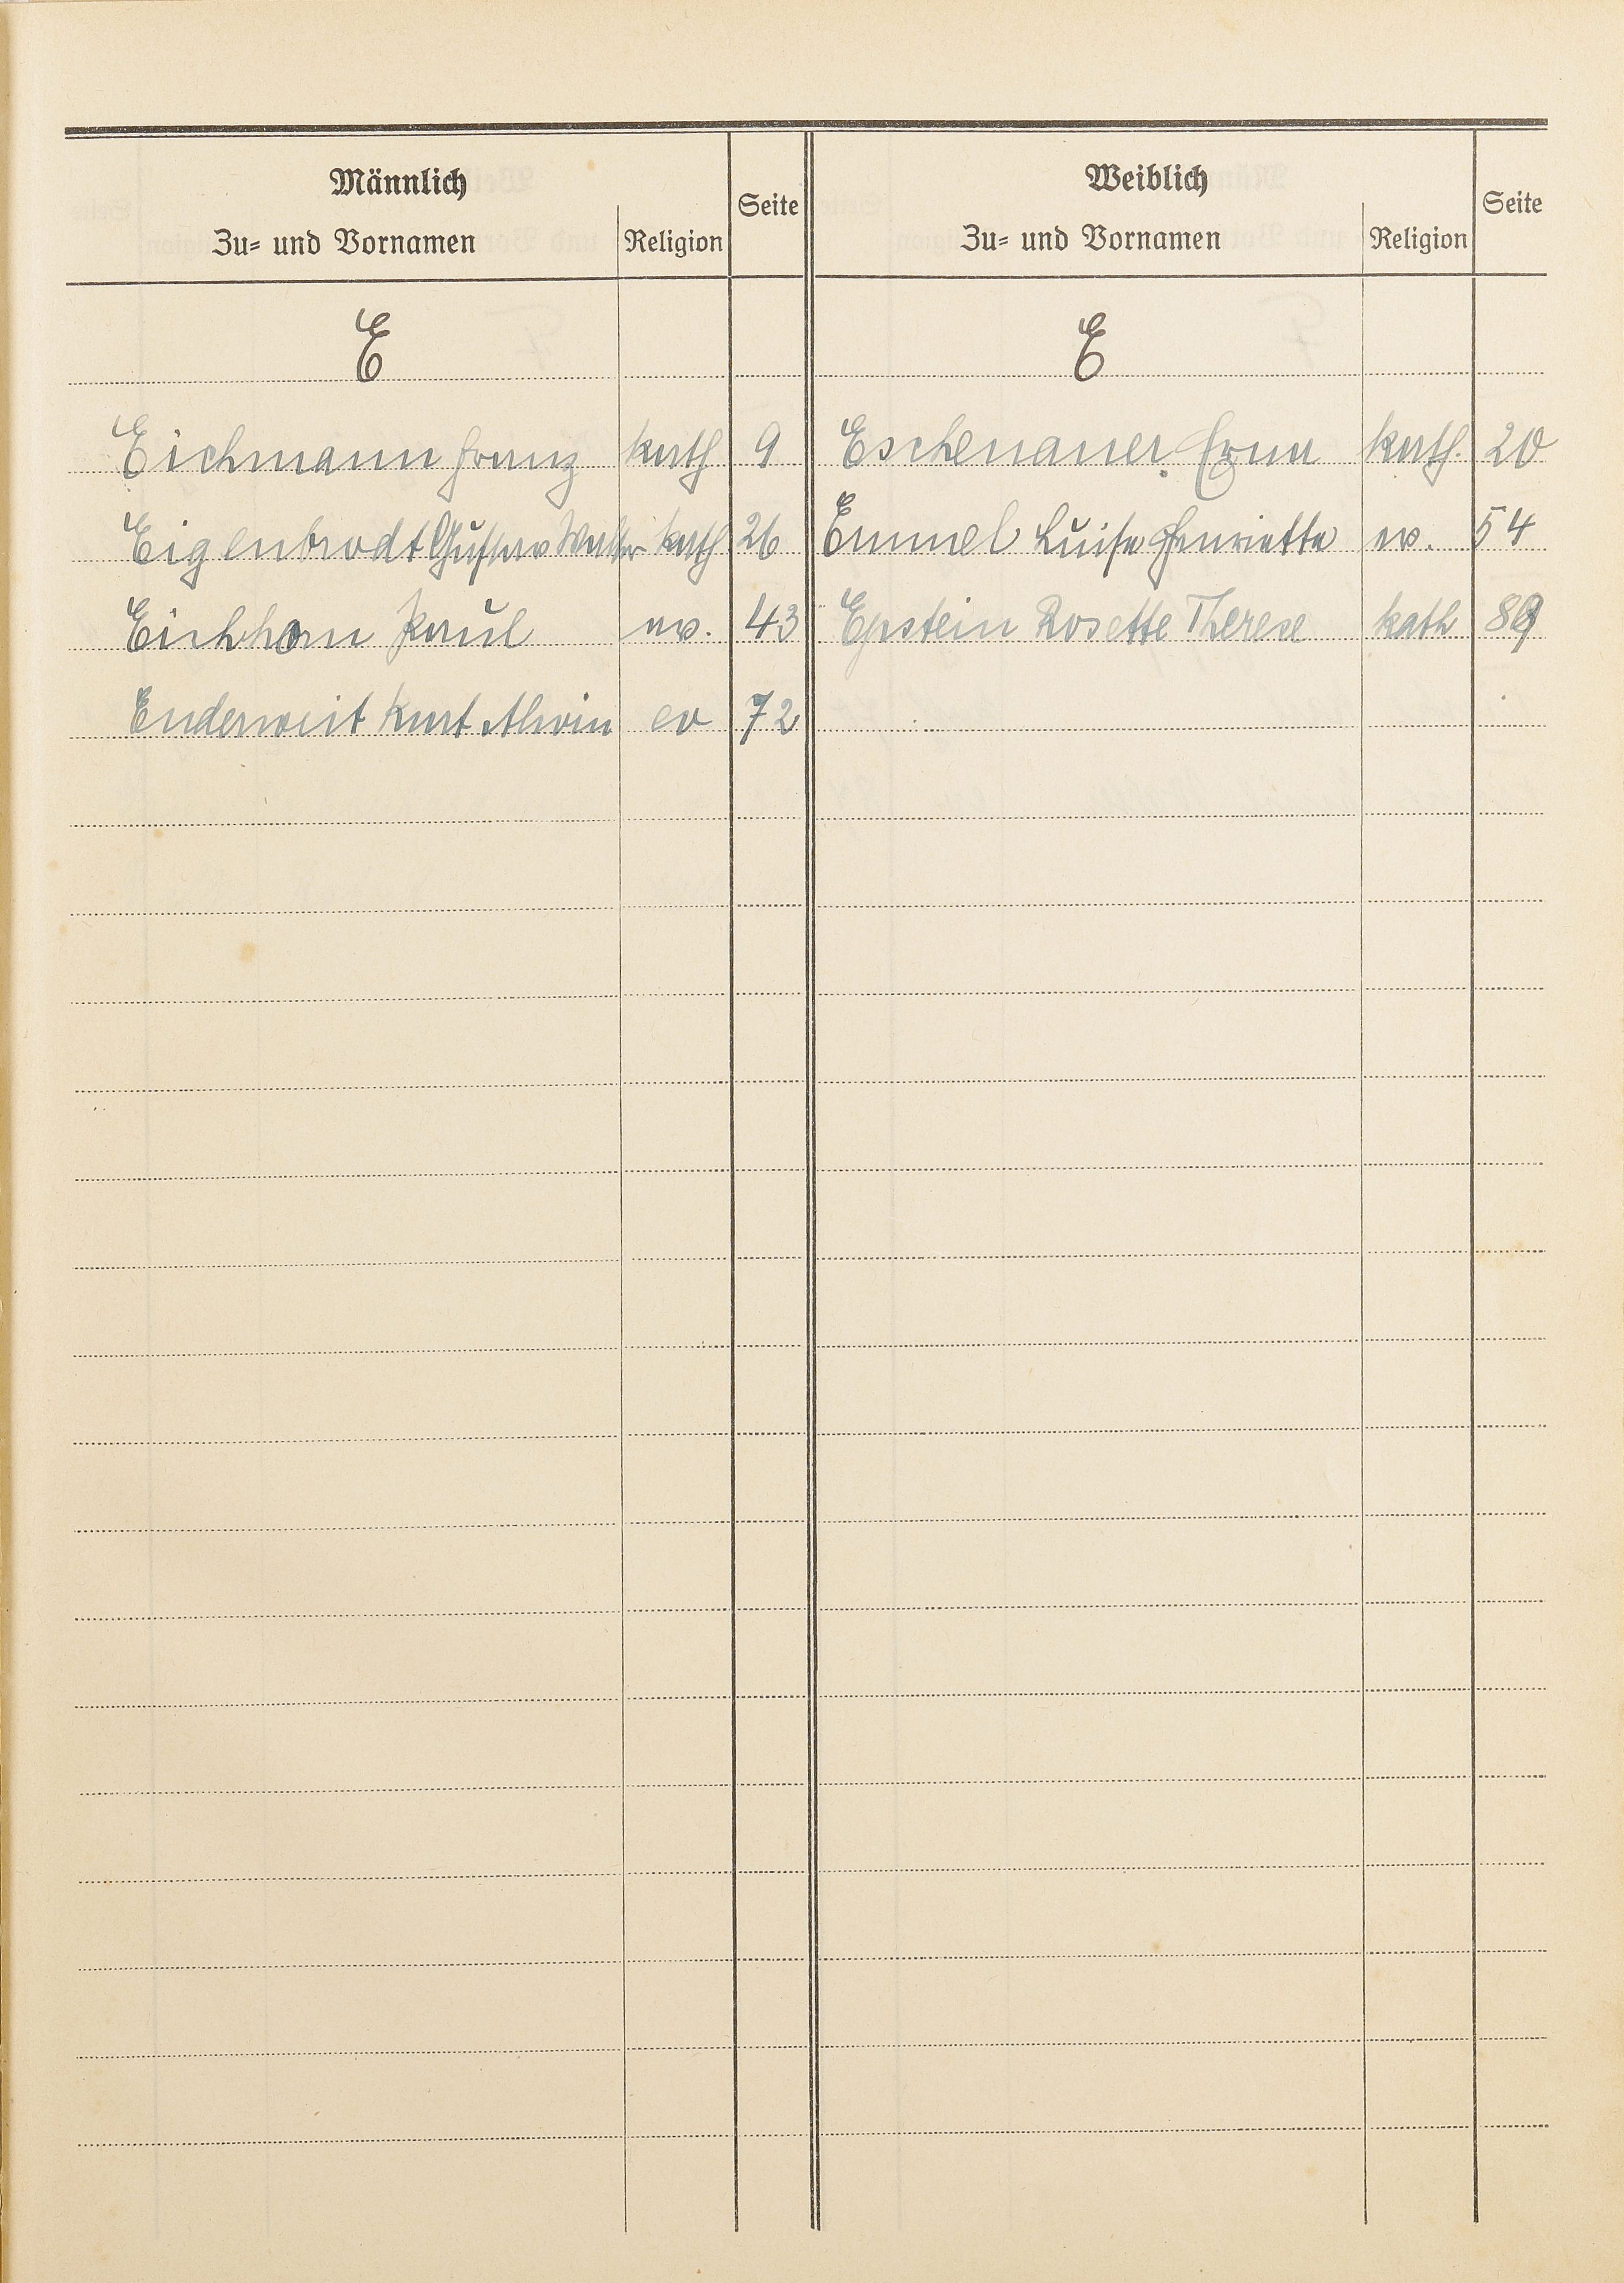 Männlich Weiblich
Seite Seite
Zu- und Vornamen Religion Zu- und Vornamen Religion
E E
Eichmann Franz kath 9 Eschenauer Erna kath. 20
Eigenbrodt Gustav Walter kath 26 Emmel Luise Henriette ev. 54
Eichhorn Paul ev. 43 Epstein Rosette Therese kath 89
Enderweit Kurt Alwin ev 72